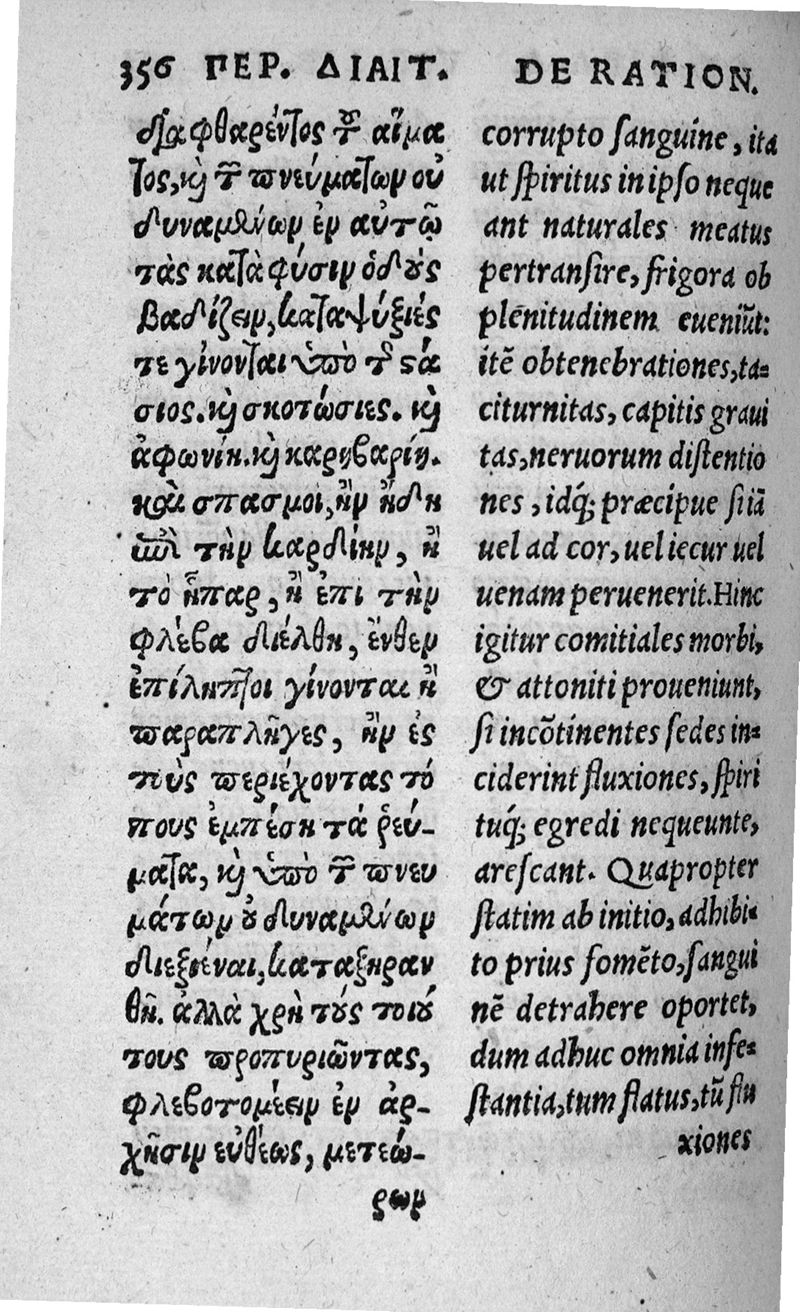 356 ΠΕΡ. ΔΙΑΙΤ.
διαφθαρέντος τοῦ αἵμα
τος, καὶ τῶν πνευμάτων οὐ
δυναμένων ἐν αὐτῷ
τὰς κατὰ φύσιν ὁδοὺς
βαδίζειν, καταψύξιές
τε γίνονται ὑπὸ τῆς στά
σιος. καὶ σκοτώσιες. καὶ
ἀφωνίη. καὶ καρηβαρίη.
καὶ σπασμοὶ, ἢν ἤδη
ἐπὶ τὴν καρδίην, ἢ
τὸ ἧπαρ, ἢ ἐπὶ τὴν
φλέβα διέλθη, ἔνθεν
ἐπίληπτοι γίνονται ἢ
παραπλῆγες, ἢν ἐς
τοὺς περιέχοντας τό
πους ἐμπέση τὰ ῥεύ-
ματα, καὶ ὑπὸ τῶν πνευ
μάτων οὐ δυναμένων
διεξιέναι, καταξηραν
θῆ. ἀλλὰ χρὴ τοὺς τοιού
τους προπυριῶντας,
φλεβοτομέειν ἐν ἀρ-
χῆσιν εὐθέως, μετεώ-
ρων
DE RATION.
corrupto sanguine, ita
ut spiritus in ipso neque
ant naturales meatus
pertransire, frigora ob
plenitudinem eueniūt:
itē obtenebrationes, ta-
citurnitas, capitis graui
tas, neruorum distentio
nes, idq; præcipue si iā
uel ad cor, uel iecur uel
uenam peruenerit. Hinc
igitur comitiales morbi,
& attoniti proueniunt,
si incōtinentes sedes in-
ciderint fluxiones, spiri
tuq; egredi nequeunte,
arescant. Quapropter
statim ab initio, adhibi-
to prius fomēto, sangui
nē detrahere oportet,
dum adhuc omnia infe-
stantia, tum flatus, tū flu
xiones